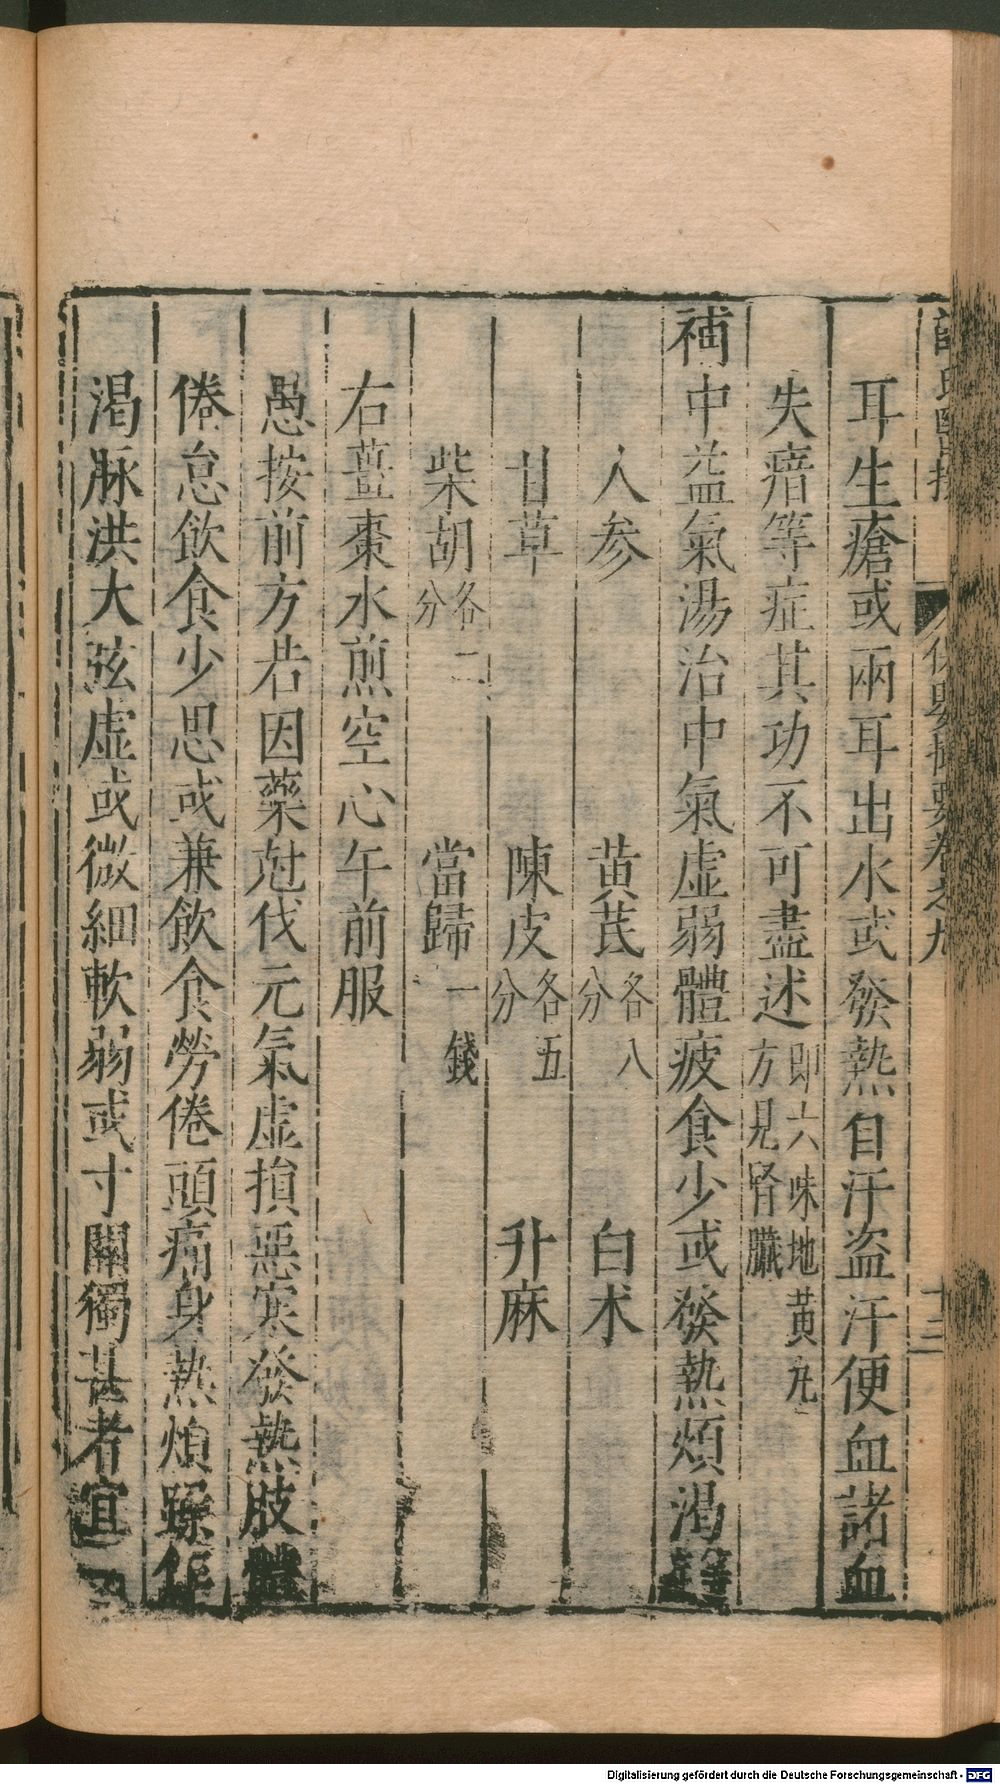 耳生瘡或兩耳出水或發熱自汗盜汗便血諸血
失瘖等症其功不可盡述即六味地黃丸方見腎臟
補中益氣湯治中氣虛弱體疲食少或發熱煩渴等
人參 黃芪各八分 白术
甘草 陳皮各五分 升麻
柴胡各二分 當歸一錢
右薑棗水煎空心午前服
愚按前方若因藥尅伐元氣虛損惡寒發熱肢體
倦怠飲食少思或兼飲食勞倦頭痛身熱煩躁作
渴脉洪大弦虛或微細軟弱或寸關獨甚者宜
氏醫按 保嬰撮要卷之九 十三
Digitalisierung gefördert durch die Deutsche Forschungsgemeinschaft - DFG